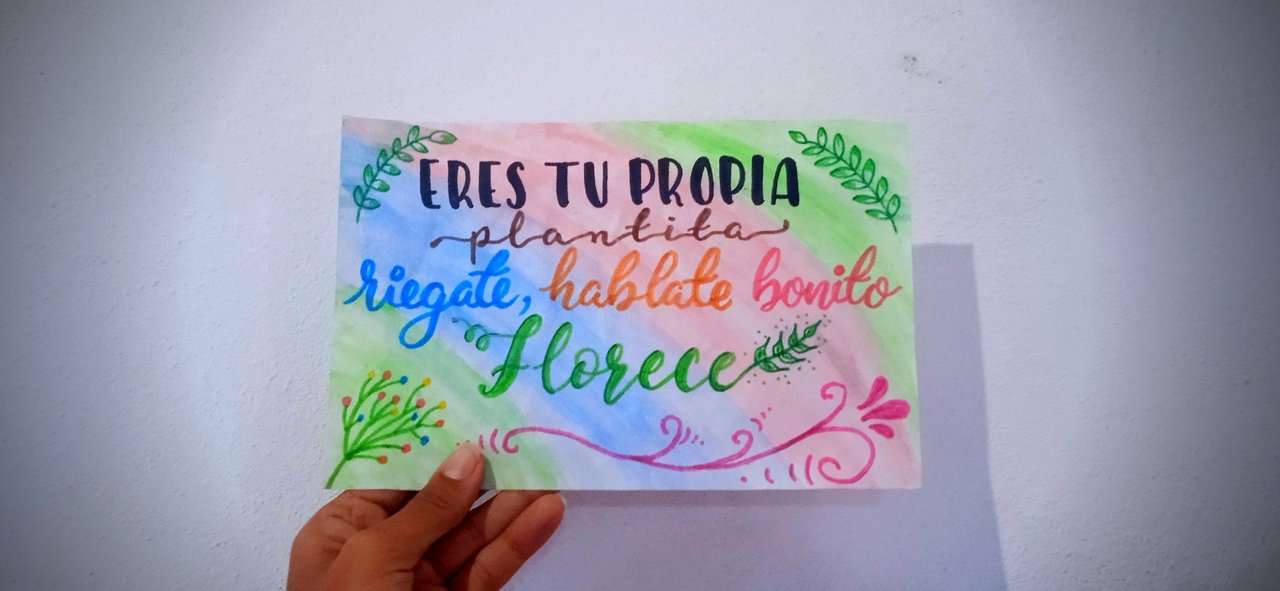 ERES TU PROPIA
plantita
riegate, hablate bonito
Florece